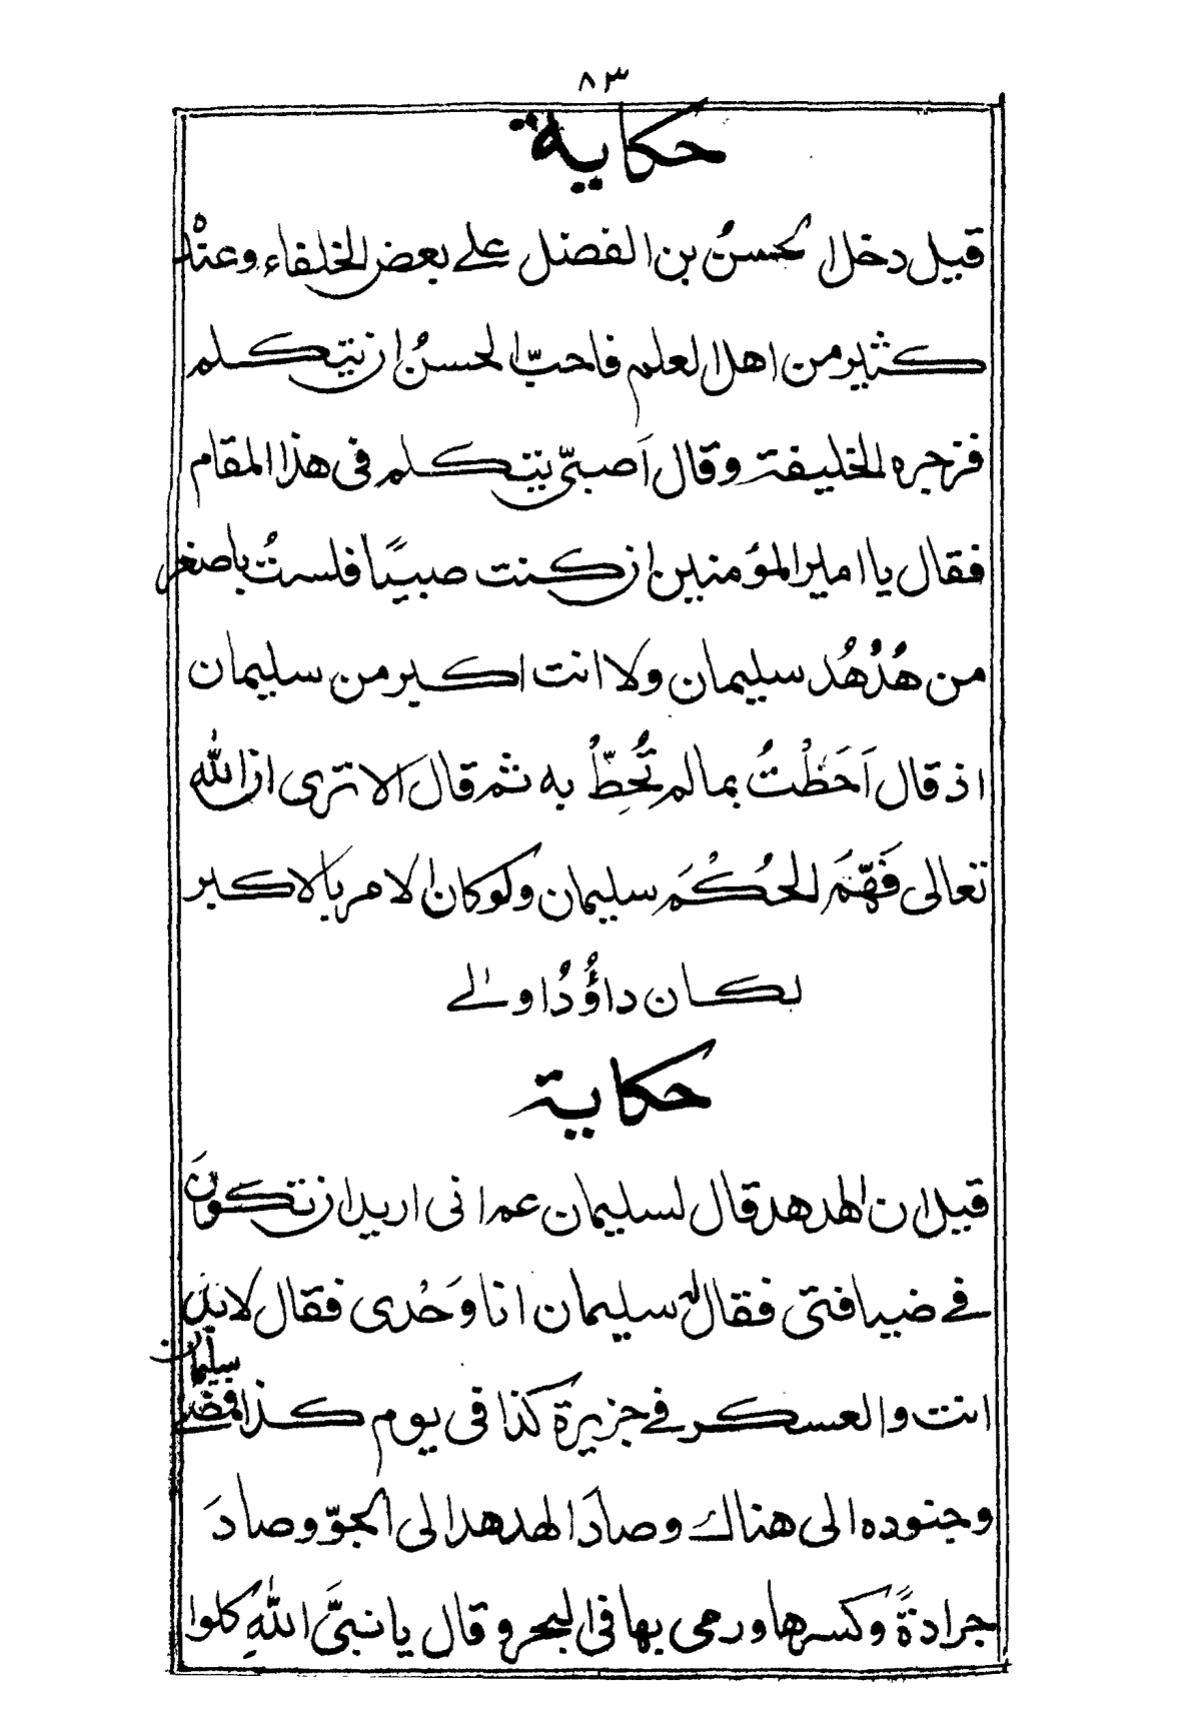 ٨٣
حكاية
قيل دخل الحسنُ بن الفضل على بعض الخلفاء وعندْه
كثير من اهل العلم فاحبّ الحسنُ ان يتكلم
فزجره الخليفة وقال اَصبىّ يتكلم فى هذا المقام
فقال يا امير المؤمنين ان كنت صبيًا فلستُ باصغر
من هُدْهُد سليمان ولا انت اكبر من سليمان
اذ قال اَحَطْتُ بما لم تُحِطْ به ثم قال الا ترى ان الله
تعالى فَهَّمَ الحُكْمَ سليمان ولو كان الامر بالاكبر
لكان داوُدُ اولى
حكاية
قيل ان الهدهد قال لسليمان عم انى اريد ان تكونَ
فى ضيافتى فقال له سليمان انا وَحْدى فقال لا بل
انت والعسكر فى جزيرة كذا فى يوم كذا فمضى سليمان
وجنوده الى هناك وصادَ الهدهد الى الجوّ وصادَ
جرادةً وكسرها ورمى بها فى البحر وقال يا نبىَّ اللهِ كلوا